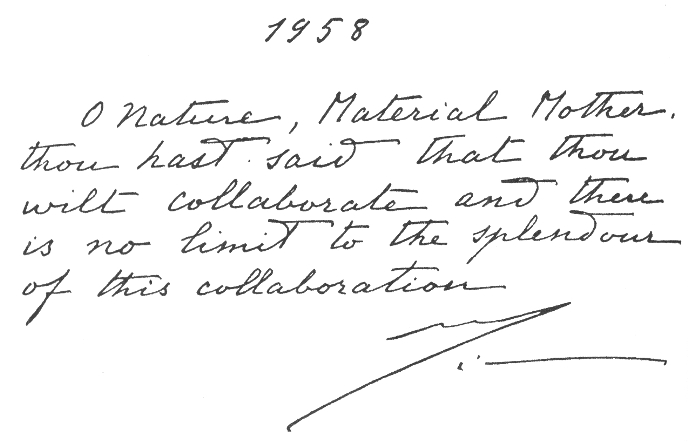 1958
O Nature, Material Mother.
thou hast said that thou
wilt collaborate and there
is no limit to the splendour
of this collaboration